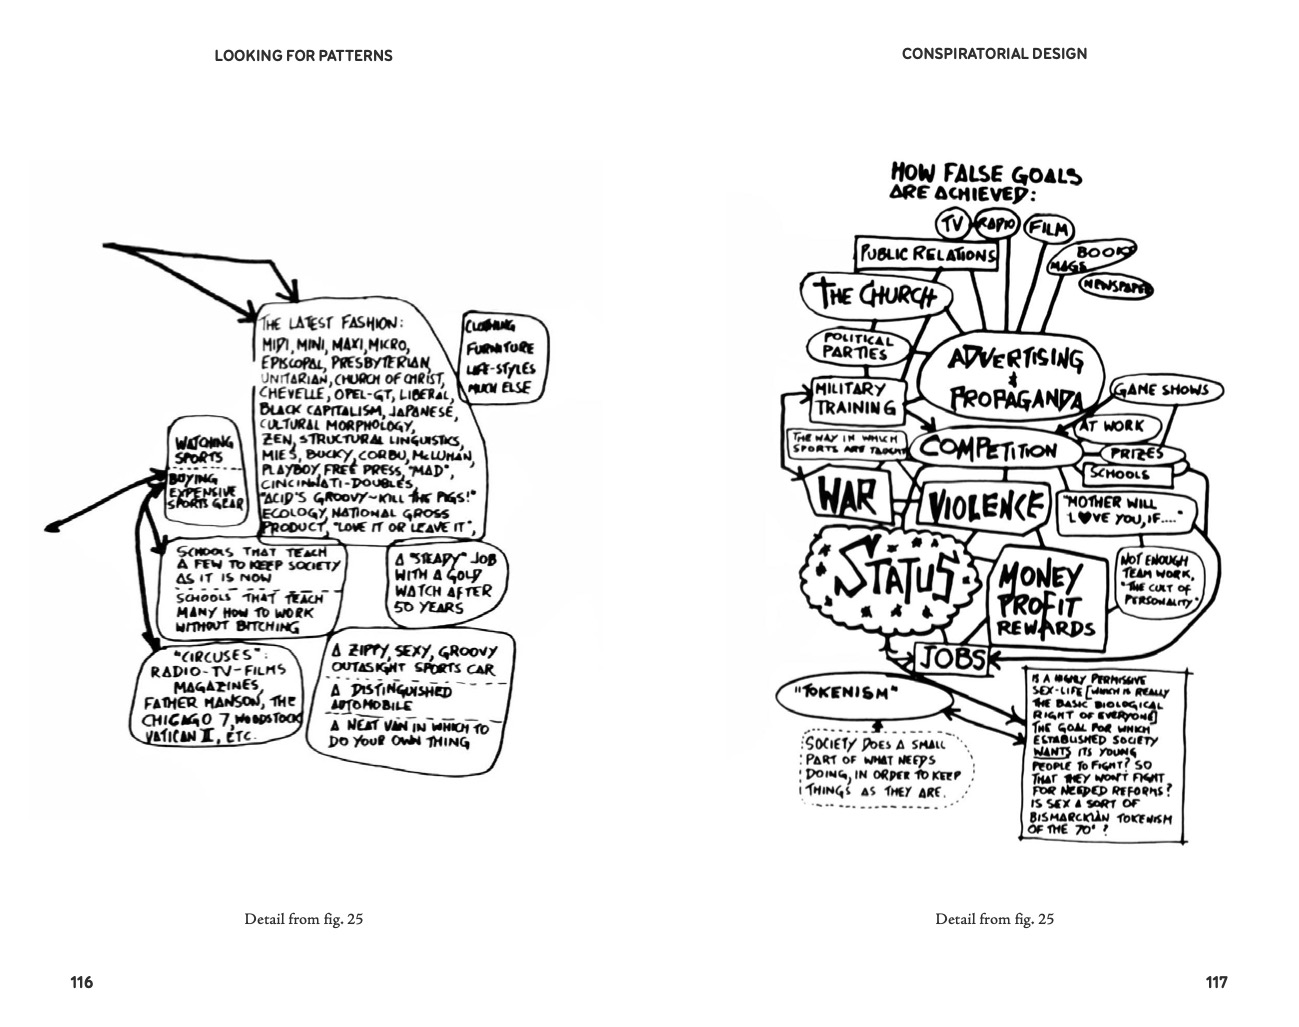 LOOKING FOR PATTERNS
THE LATEST FASHION:
MIDI, MINI, MAXI, MICRO,
EPISCOPAL, PRESBYTERIAN,
UNITARIAN, CHURCH OF CHRIST,
CHEVELLE, OPEL-GT, LIBERAL,
BLACK CAPITALISM, JAPANESE,
CULTURAL MORPHOLOGY,
ZEN, STRUCTURAL LINGUISTICS,
MIES, BUCKY, CORBU, McLUHAN,
PLAYBOY, FREE PRESS, "MAD",
CINCINNATI-DOUBLES,
"ACID'S GROOVY~KILL THE PIGS!"
ECOLOGY, NATIONAL GROSS
PRODUCT, "LOVE IT OR LEAVE IT",
CLOTHING
FURNITURE
LIFE-STYLES
MUCH ELSE
WATCHING
SPORTS
BUYING
EXPENSIVE
SPORTS GEAR
SCHOOLS THAT TEACH
A FEW TO KEEP SOCIETY
AS IT IS NOW
SCHOOLS THAT TEACH
MANY HOW TO WORK
WITHOUT BITCHING
A "STEADY" JOB
WITH A GOLD
WATCH AFTER
50 YEARS
"CIRCUSES":
RADIO-TV-FILMS
MAGAZINES,
FATHER MANSON, THE
CHICAGO 7, WOODSTOCK
VATICAN II, ETC.
A ZIPPY, SEXY, GROOVY
OUTASIGHT SPORTS CAR
A DISTINGUISHED
AUTOMOBILE
A NEAT VAN IN WHICH TO
DO YOUR OWN THING
Detail from fig. 25
116
CONSPIRATORIAL DESIGN
HOW FALSE GOALS
ARE ACHIEVED:
TV
RADIO
FILM
BOOKS
MAGS
NEWSPAPER
PUBLIC RELATIONS
THE CHURCH
POLITICAL
PARTIES
ADVERTISING
&
PROPAGANDA
MILITARY
TRAINING
GAME SHOWS
AT WORK
THE WAY IN WHICH
SPORTS ARE TAUGHT
COMPETITION
PRIZES
SCHOOLS
WAR
VIOLENCE
"MOTHER WILL
L♥VE YOU, IF...."
STATUS
MONEY
PROFIT
REWARDS
NOT ENOUGH
TEAM WORK,
"THE CULT OF
PERSONALITY"
JOBS
"TOKENISM"
SOCIETY DOES A SMALL
PART OF WHAT NEEDS
DOING, IN ORDER TO KEEP
THINGS AS THEY ARE.
IS A HIGHLY PERMISSIVE
SEX-LIFE [WHICH IS REALLY
THE BASIC BIOLOGICAL
RIGHT OF EVERYONE]
THE GOAL FOR WHICH
ESTABLISHED SOCIETY
WANTS ITS YOUNG
PEOPLE TO FIGHT? SO
THAT THEY WON'T FIGHT
FOR NEEDED REFORMS?
IS SEX A SORT OF
BISMARCKIAN TOKENISM
OF THE 70s ?
Detail from fig. 25
117